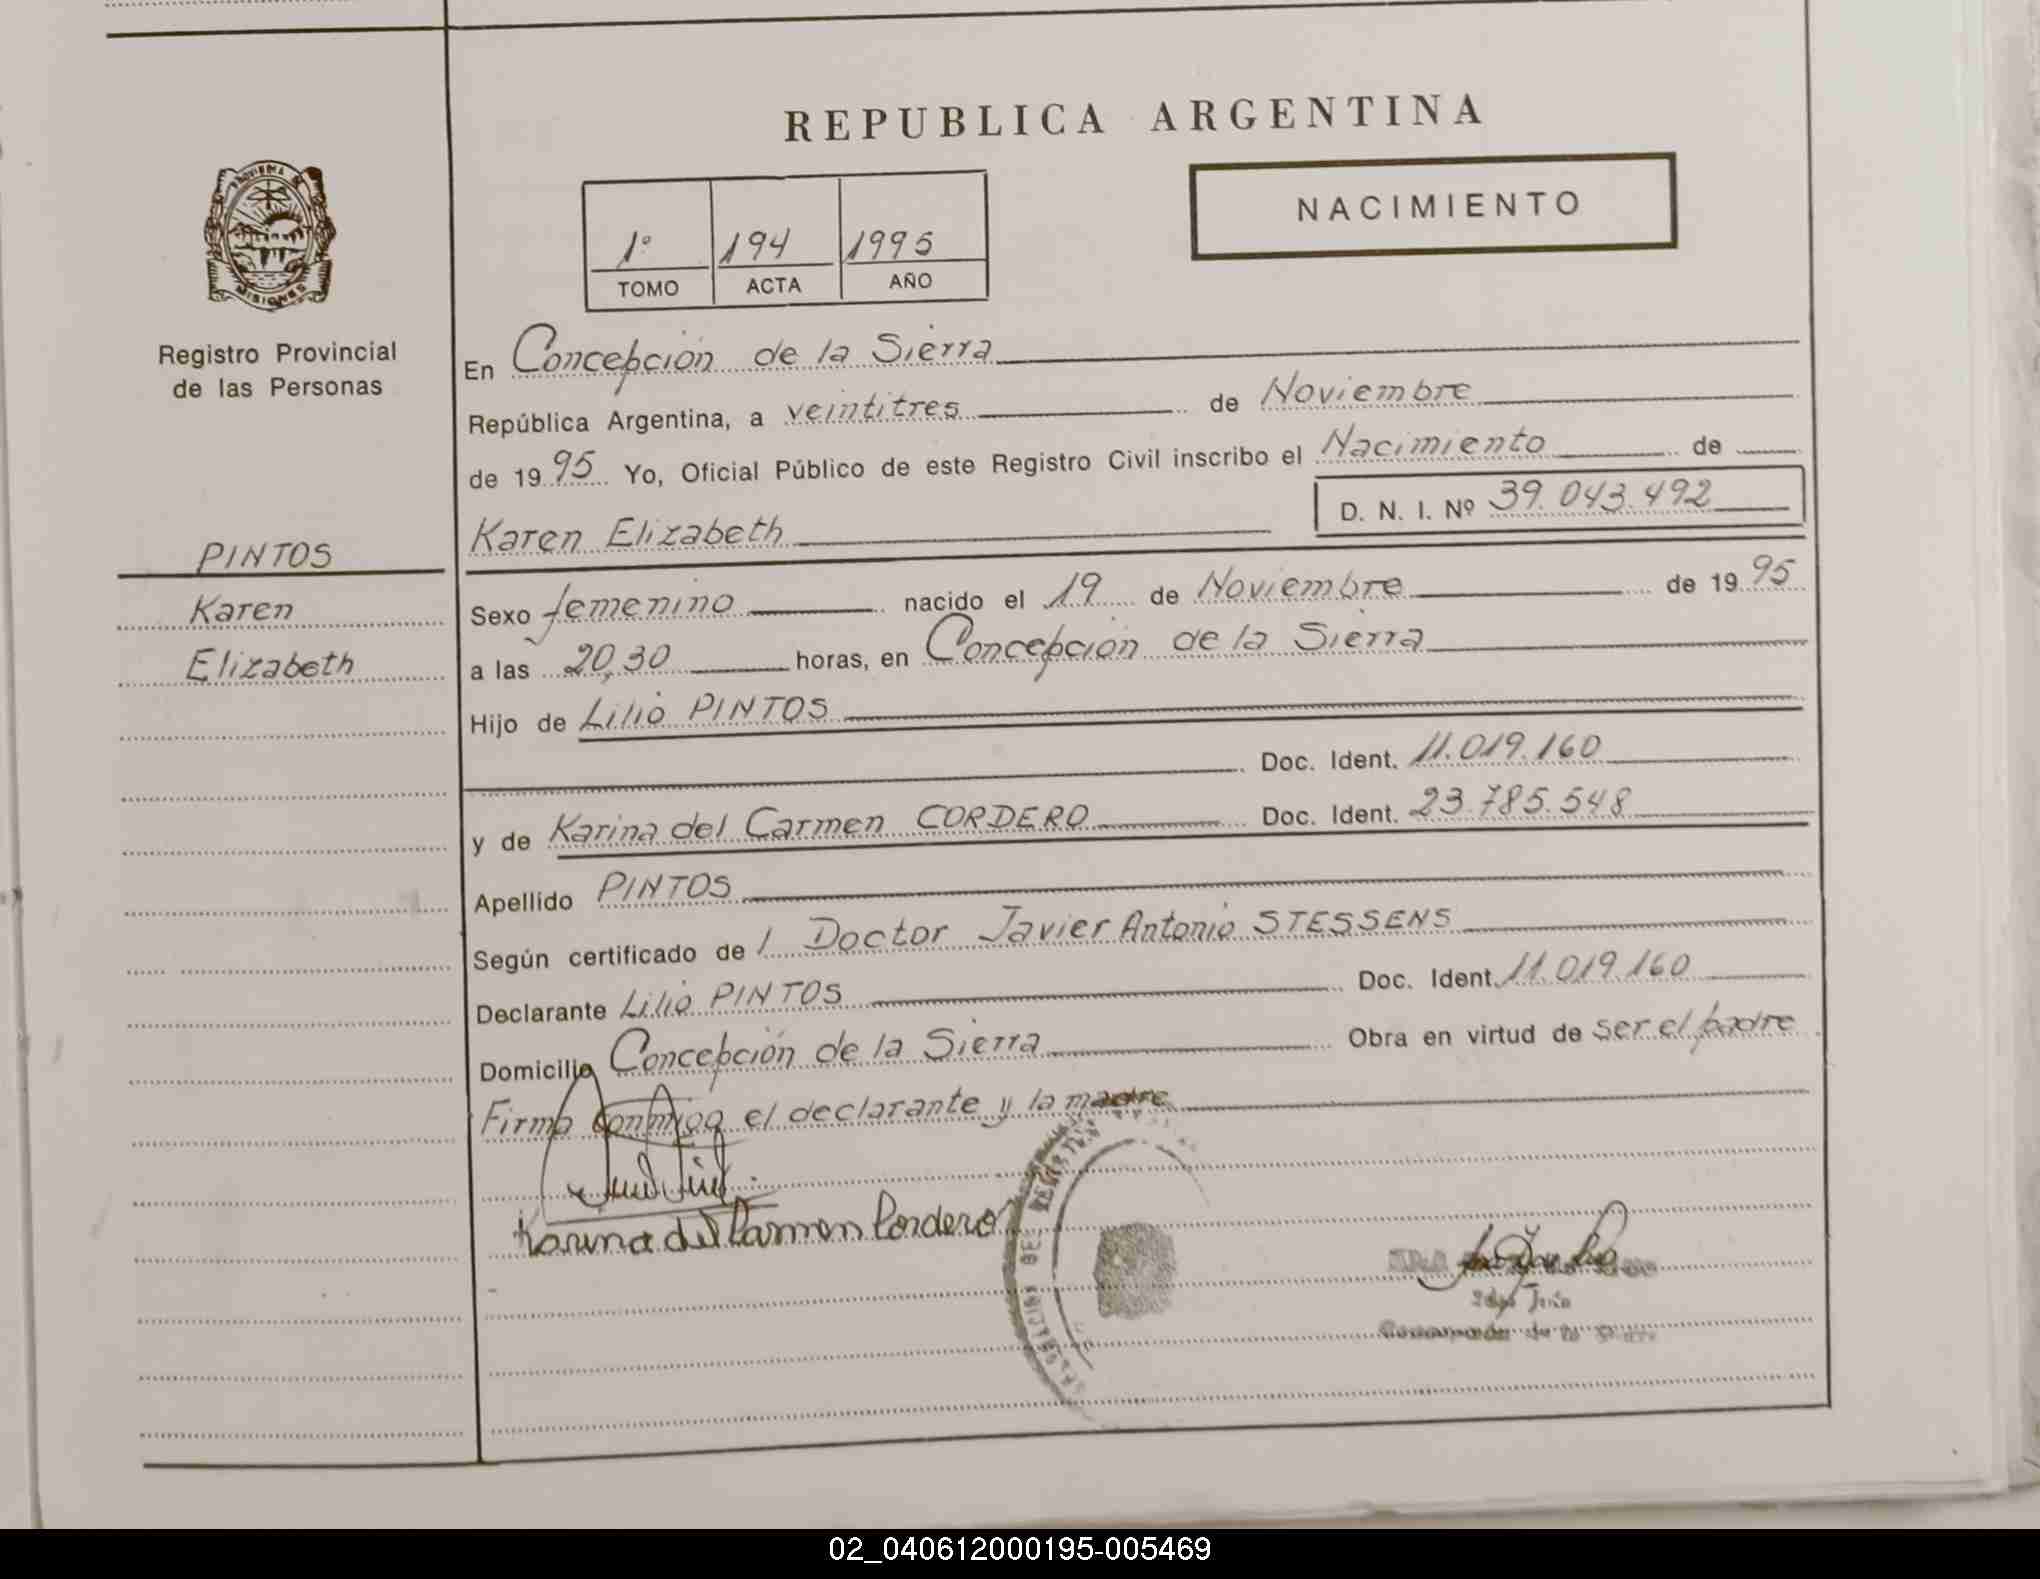 REPUBLICA ARGENTINA
PROVINCIA
MISIONES
Registro Provincial
de las Personas
1º 194 1995
TOMO ACTA AÑO
NACIMIENTO
En Concepción de la Sierra
República Argentina, a veintitres de Noviembre
de 1995 Yo, Oficial Público de este Registro Civil inscribo el Nacimiento de
D. N. I. Nº 39.043.492
Karen Elizabeth
PINTOS
Karen
Elizabeth
Sexo femenino nacido el 19 de Noviembre de 1995
a las 20,30 horas, en Concepción de la Sierra
Hijo de Lilio PINTOS
Doc. Ident. 11.019.160
y de Karina del Carmen CORDERO Doc. Ident. 23.785.548
Apellido PINTOS
Según certificado de l Doctor Javier Antonio STESSENS
Declarante Lilio PINTOS Doc. Ident. 11.019.160
Domicilio Concepción de la Sierra Obra en virtud de ser el padre
Firma conmigo el declarante y la madre
Karina del Carmen Cordero
02_040612000195-005469